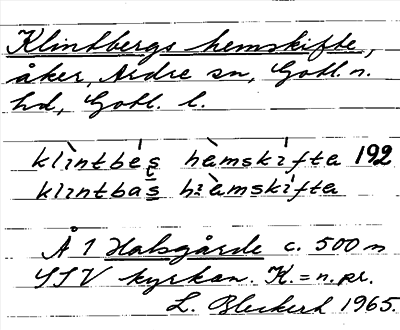 Klintbergs hemskifte,
åker, Ardre sn, Gotl. n.
hd, Gotl. l.
klìntbé̜s hàmskífta 192
klintbas hàmskífta
Å 1 Halsgårde c. 500 m
SSV kyrkan. K. = n. pr.
L. Bleckert 1965.